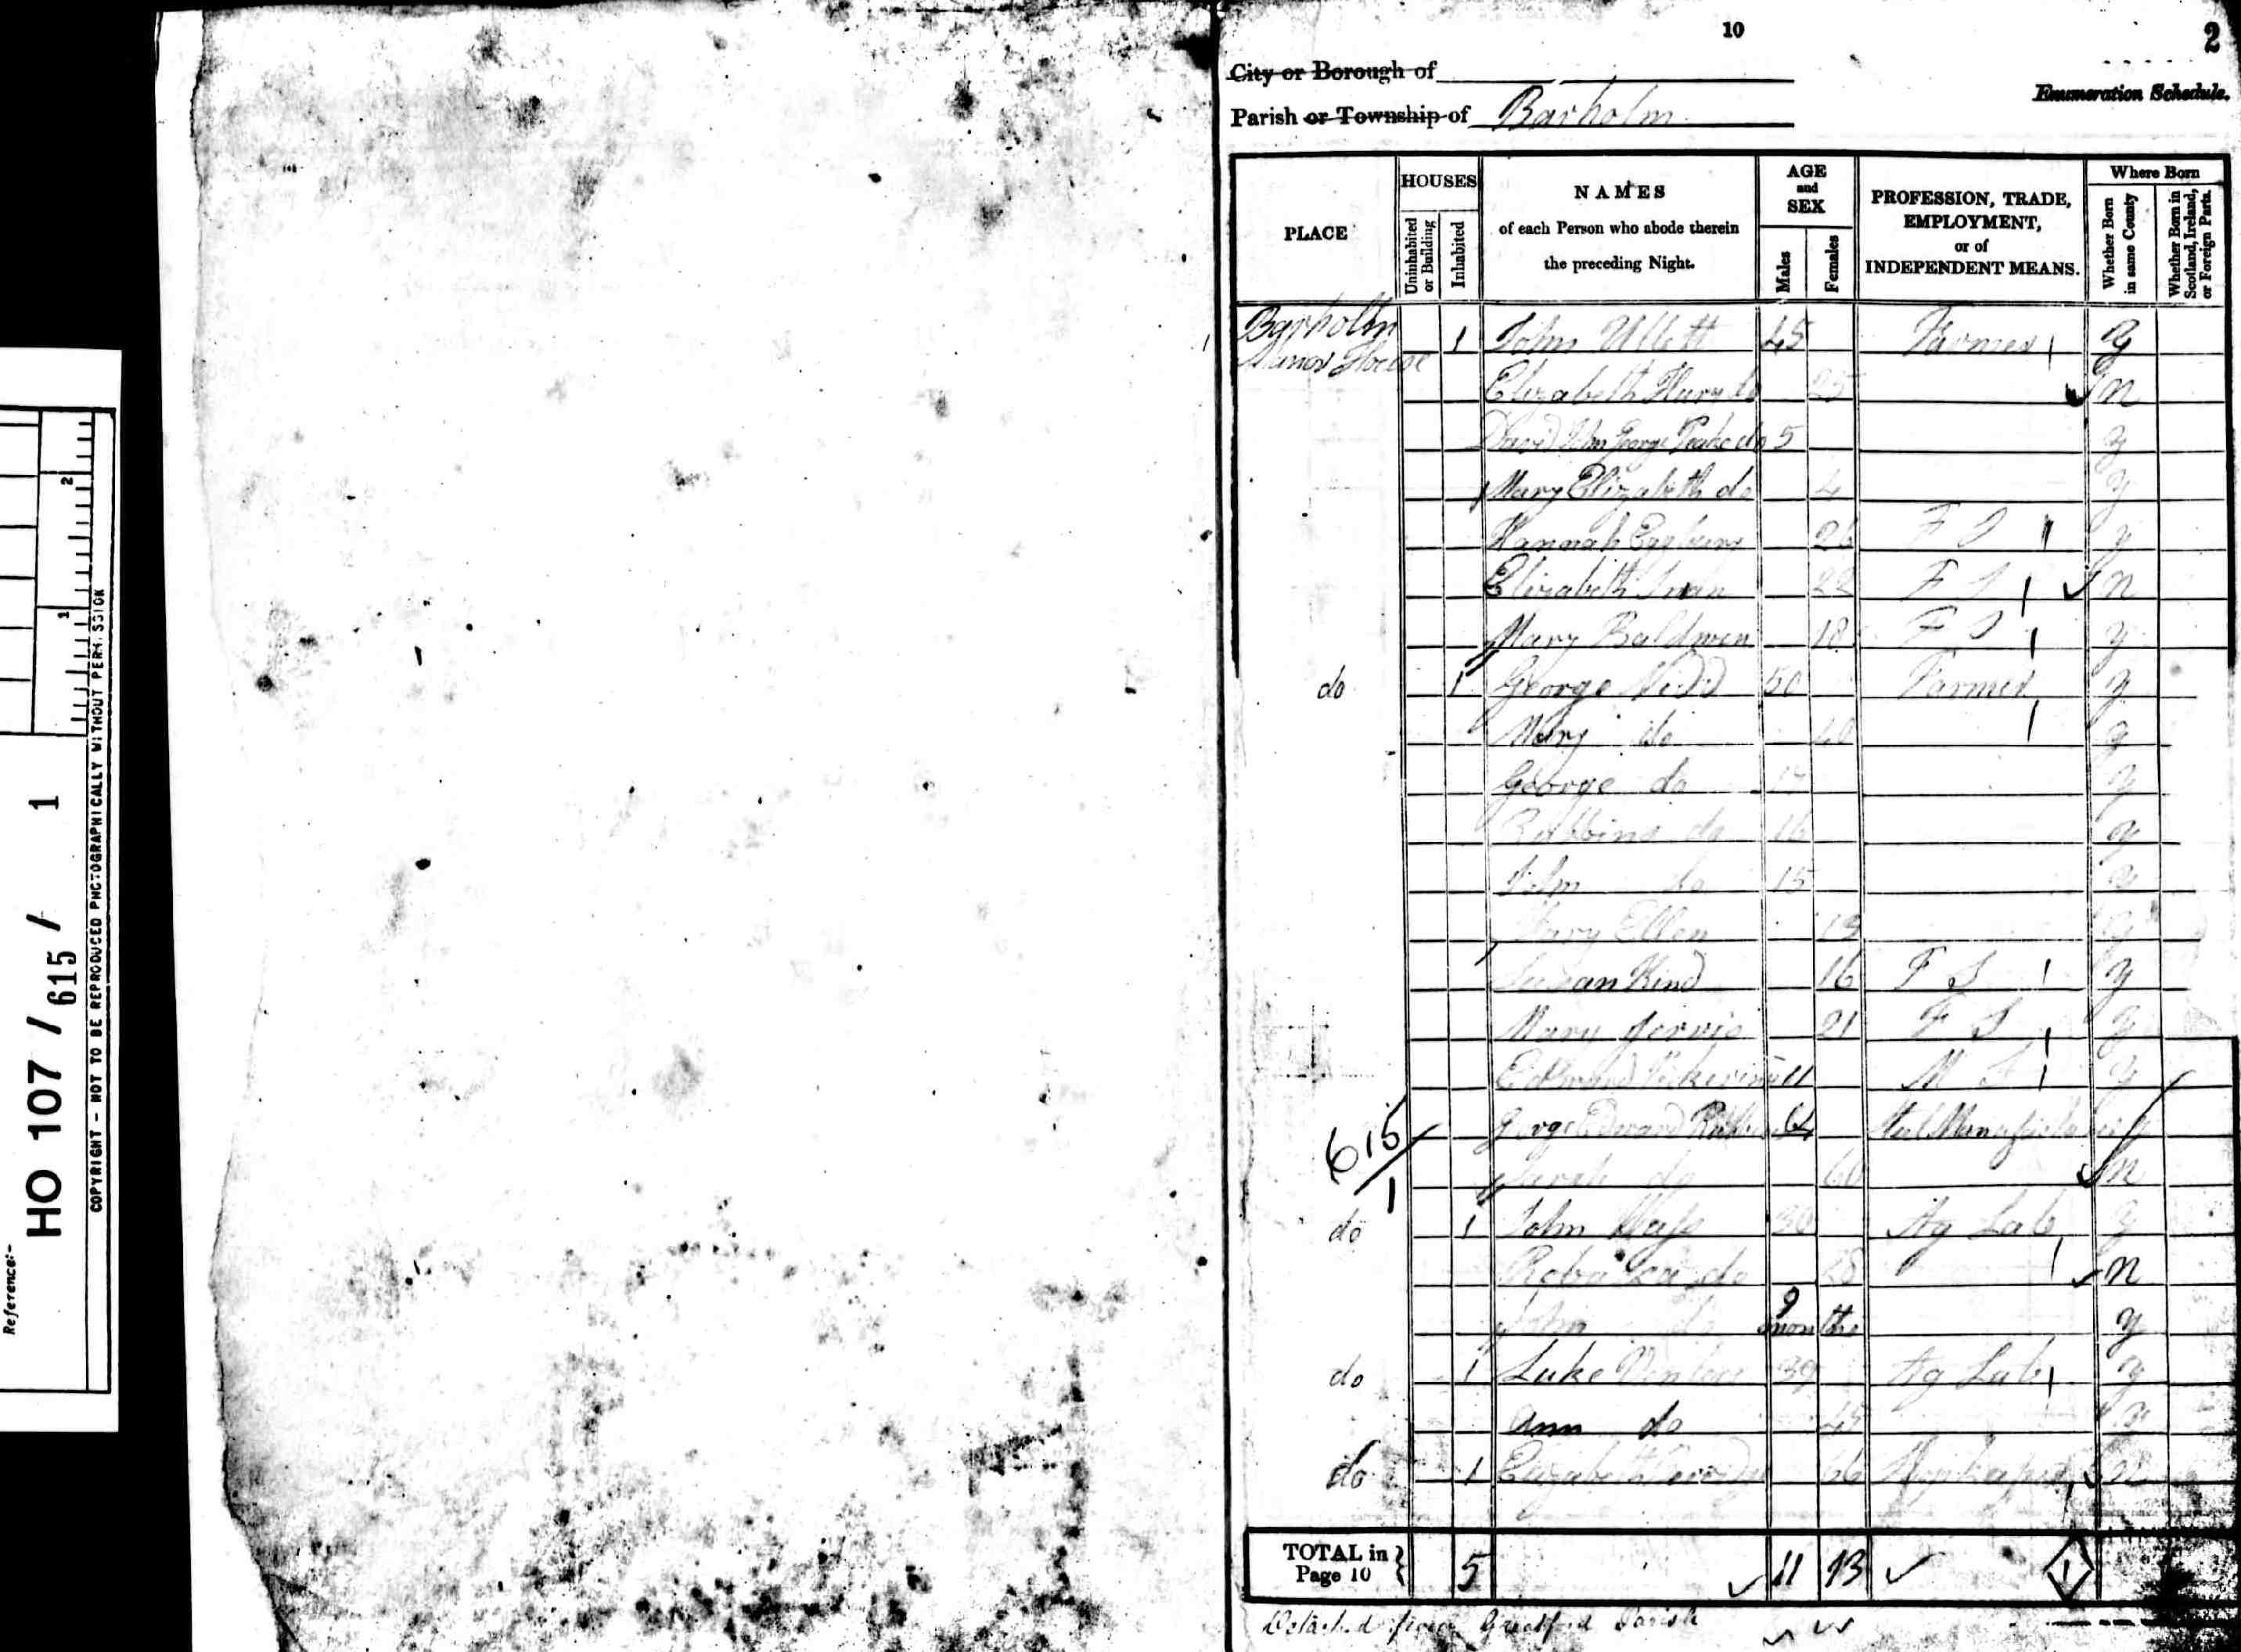 10
2
City or Borough of
Enumeration Schedule.
Parish or Township of Barholm
PLACE
HOUSES
Uninhabited or Building
Inhabited
NAMES
of each Person who abode therein
the preceding Night.
AGE
and
SEX
Males
Females
PROFESSION, TRADE,
EMPLOYMENT,
or of
INDEPENDENT MEANS.
Where Born
Whether Born in same County
Whether Born in Scotland, Ireland, or Foreign Parts.
Barholm 1 John Ullett 45 Farmer y
Manor House
Elizabeth do 25 n
David John George Peake do 5 y
Mary Elizabeth do 4 y
Hannah 26 F S y
Elizabeth Swan 22 F S n
Mary Baldwen 18 F S y
do 1 George 50 Farmer y
Mary do 40 y
George do y
Robbins do 16 y
John do 15 y
Mary Ellen 13 y
Susan Kind 16 F S y
Mary Jervis 21 F S y
Edward 11 M S y
George Edward 64 y
615
1
Sarah do 60 n
do 1 John 30 Ag Lab y
do 28 n
John do 9 months y
do 1 Luke 39 Ag Lab y
Ann do 45 y
do 1 Elizabeth 66 n
TOTAL in Page 10 5 11 13 1
Detached from Greatford Parish
2
1
COPYRIGHT - NOT TO BE REPRODUCED PHOTOGRAPHICALLY WITHOUT PERMISSION
Reference:-
HO 107 / 615 / 1